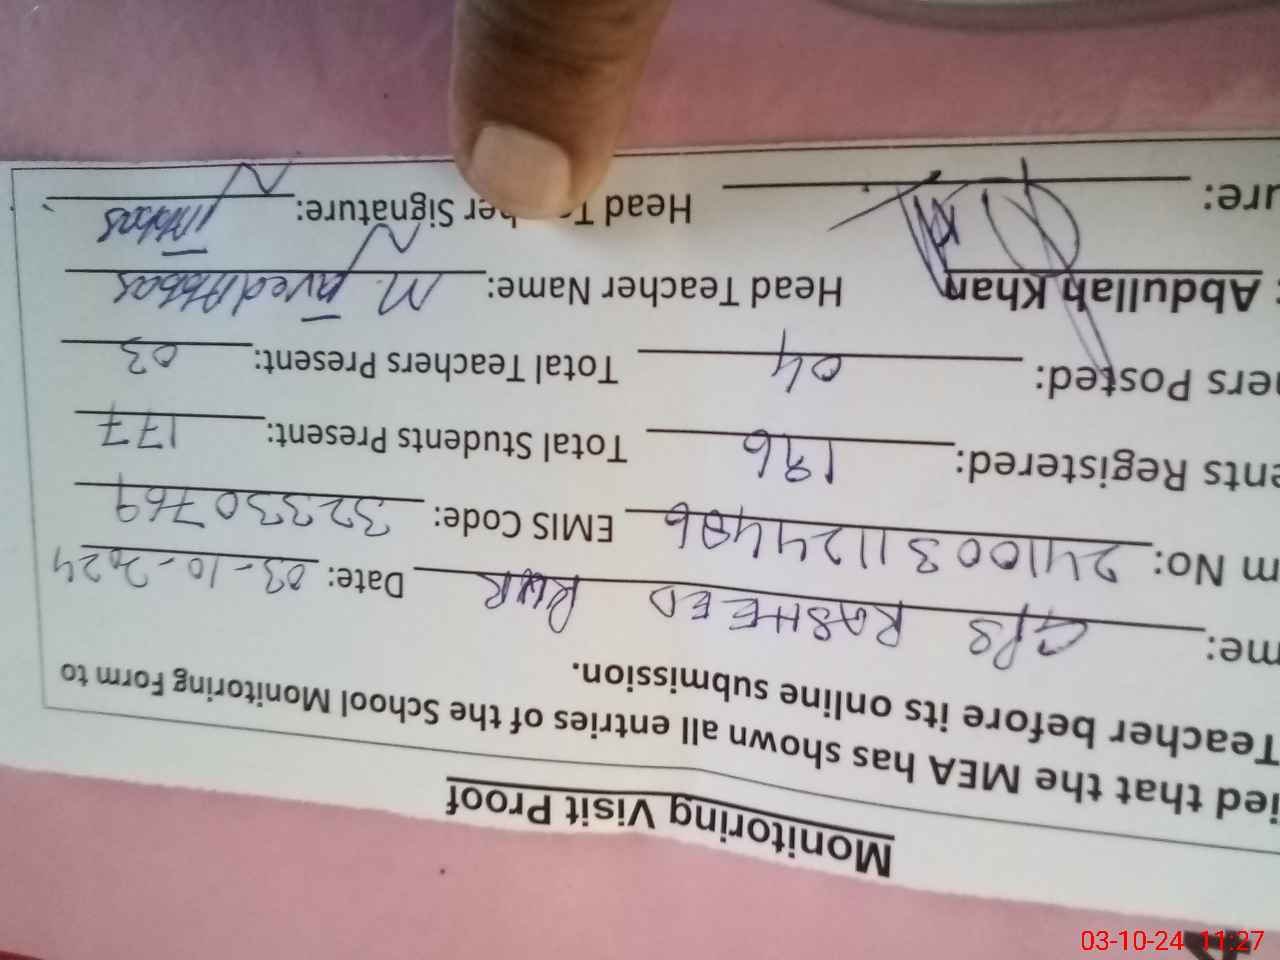 Monitoring Visit Proof
ied that the MEA has shown all entries of the School Monitoring Form to
Teacher before its online submission.
me: GPS RASHEED PUR Date: 03-10-2024
m No: EMIS Code: 32330769
ents Registered: 196 Total Students Present: 177
ers Posted: 04 Total Teachers Present: 03
: Abdullah Khan Head Teacher Name: M. Javed Abbas
ure: Head Signature: Abbas
03-10-24 11:27